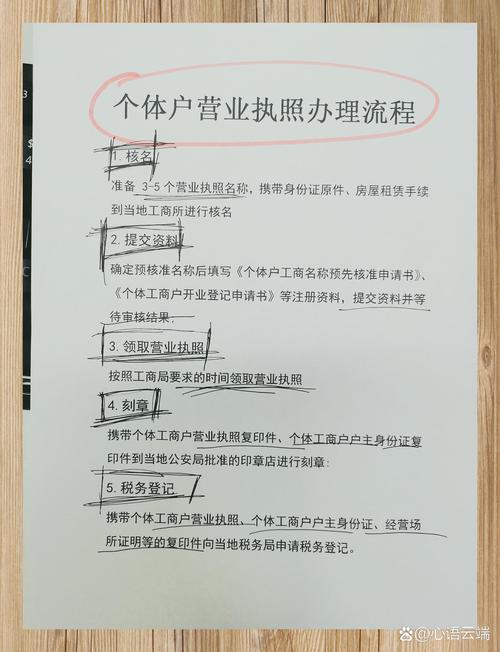 个体户营业执照办理流程
1. 核名
准备 3-5 个营业执照名称，携带身份证原件、房屋租赁手续
到当地工商所进行核名
2. 提交资料
确定预核准名称后填写《个体户工商名称预先核准申请书》、
《个体工商户开业登记申请书》等注册资料，提交资料并等
待审核结果；
3. 领取营业执照
按照工商局要求的时间领取营业执照
4. 刻章
携带个体工商户营业执照复印件、个体工商户户主身份证复
印件到当地公安局批准的印章店进行刻章；
5. 税务登记
携带个体工商户营业执照、个体工商户户主身份证、经营场
所证明等的复印件向当地税务局申请税务登记。
3
$
4
C
@心语云端